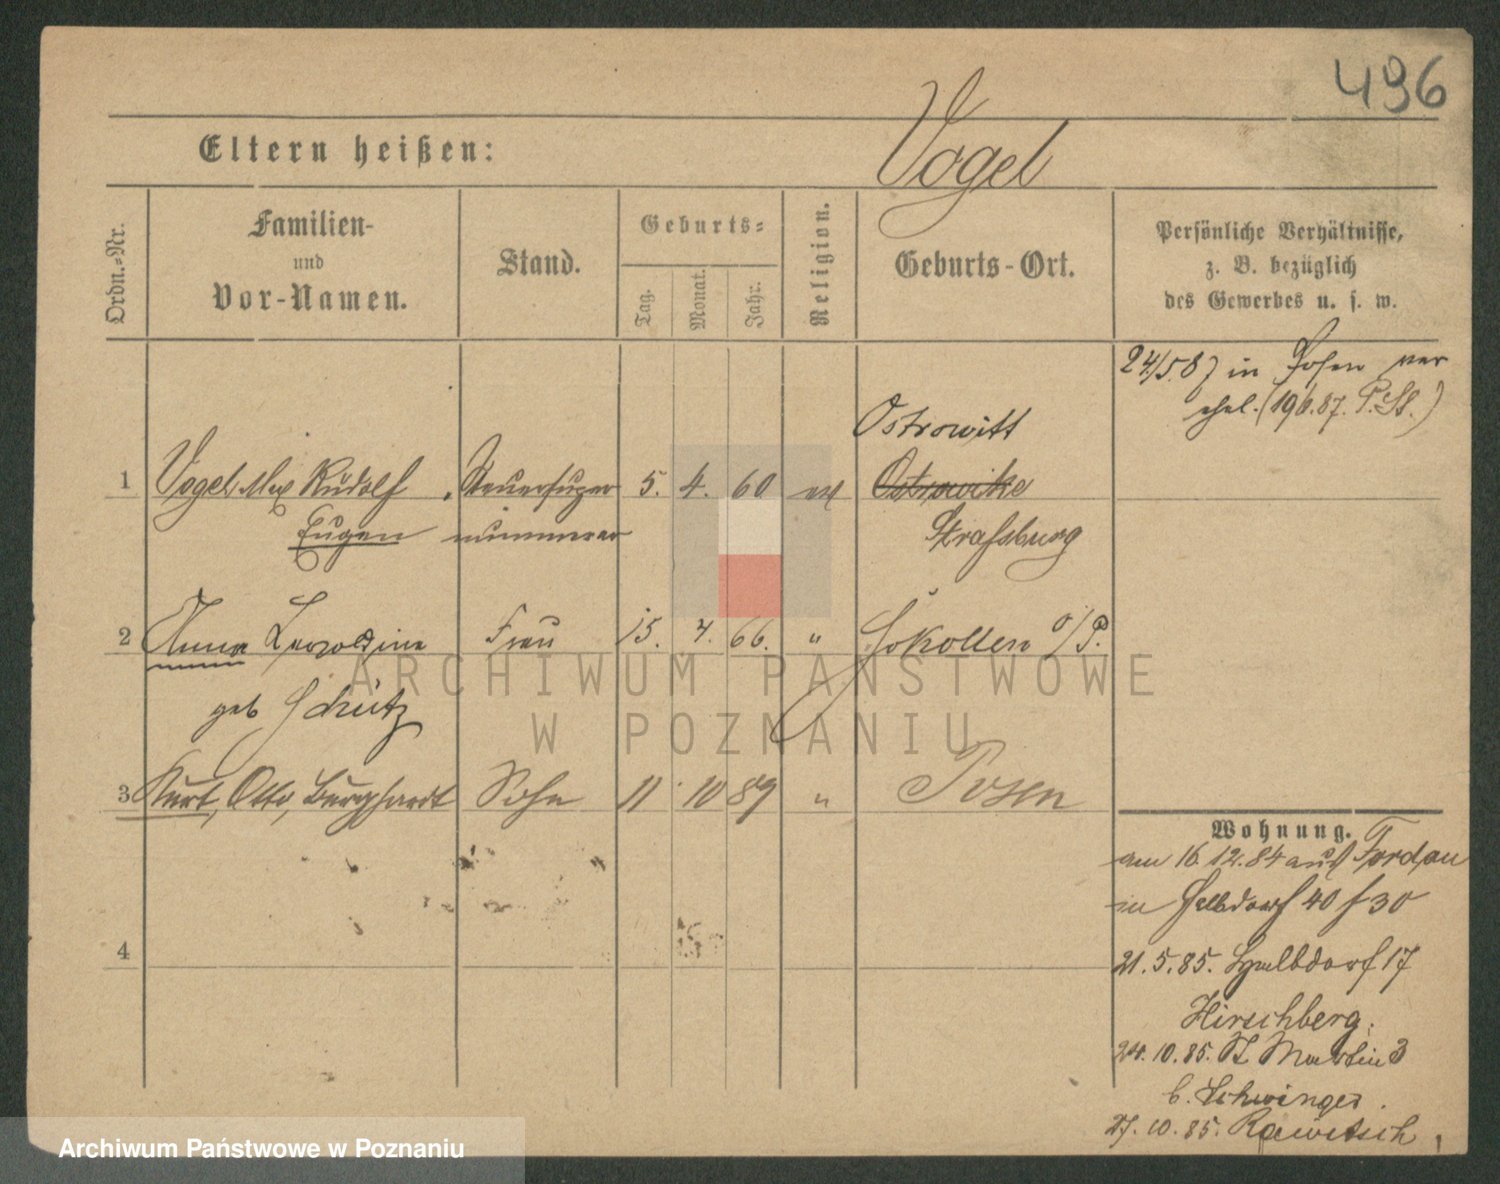 496
Eltern heißen:
Vogel
Ordn.-Nr.
Familien-
und
Vor-Namen.
Stand.
Geburts-
Tag.
Monat.
Jahr.
Religion.
Geburts-Ort.
Persönliche Verhältnisse,
z. B. bezüglich
des Gewerbes u. s. w.
24/5.87 in Posen ver
ehel. (196.87. P. St.)
Ostrowitt
1 Vogel Max Rudolf 5. 4. 60 ev Ostrowitke
Eugen nummerar Strasburg
2 Anna Leopoldine Frau 15. 4. 66. " Sokollen o/P.
geb Schütz
3 Kurt, Otto, Burghardt Sohn 11 10 89 " Posen
4
Wohnung.
am 16.12.84 aus Fordon
in Halbdorf 40 f 30
21.5.85. Halbdorf 17
Hirschberg.
24.10.85. St Martin 3
b. Schwinger.
27.10.85. Rawitsch
ARCHIWUM PAŃSTWOWE
W POZNANIU
Archiwum Państwowe w Poznaniu